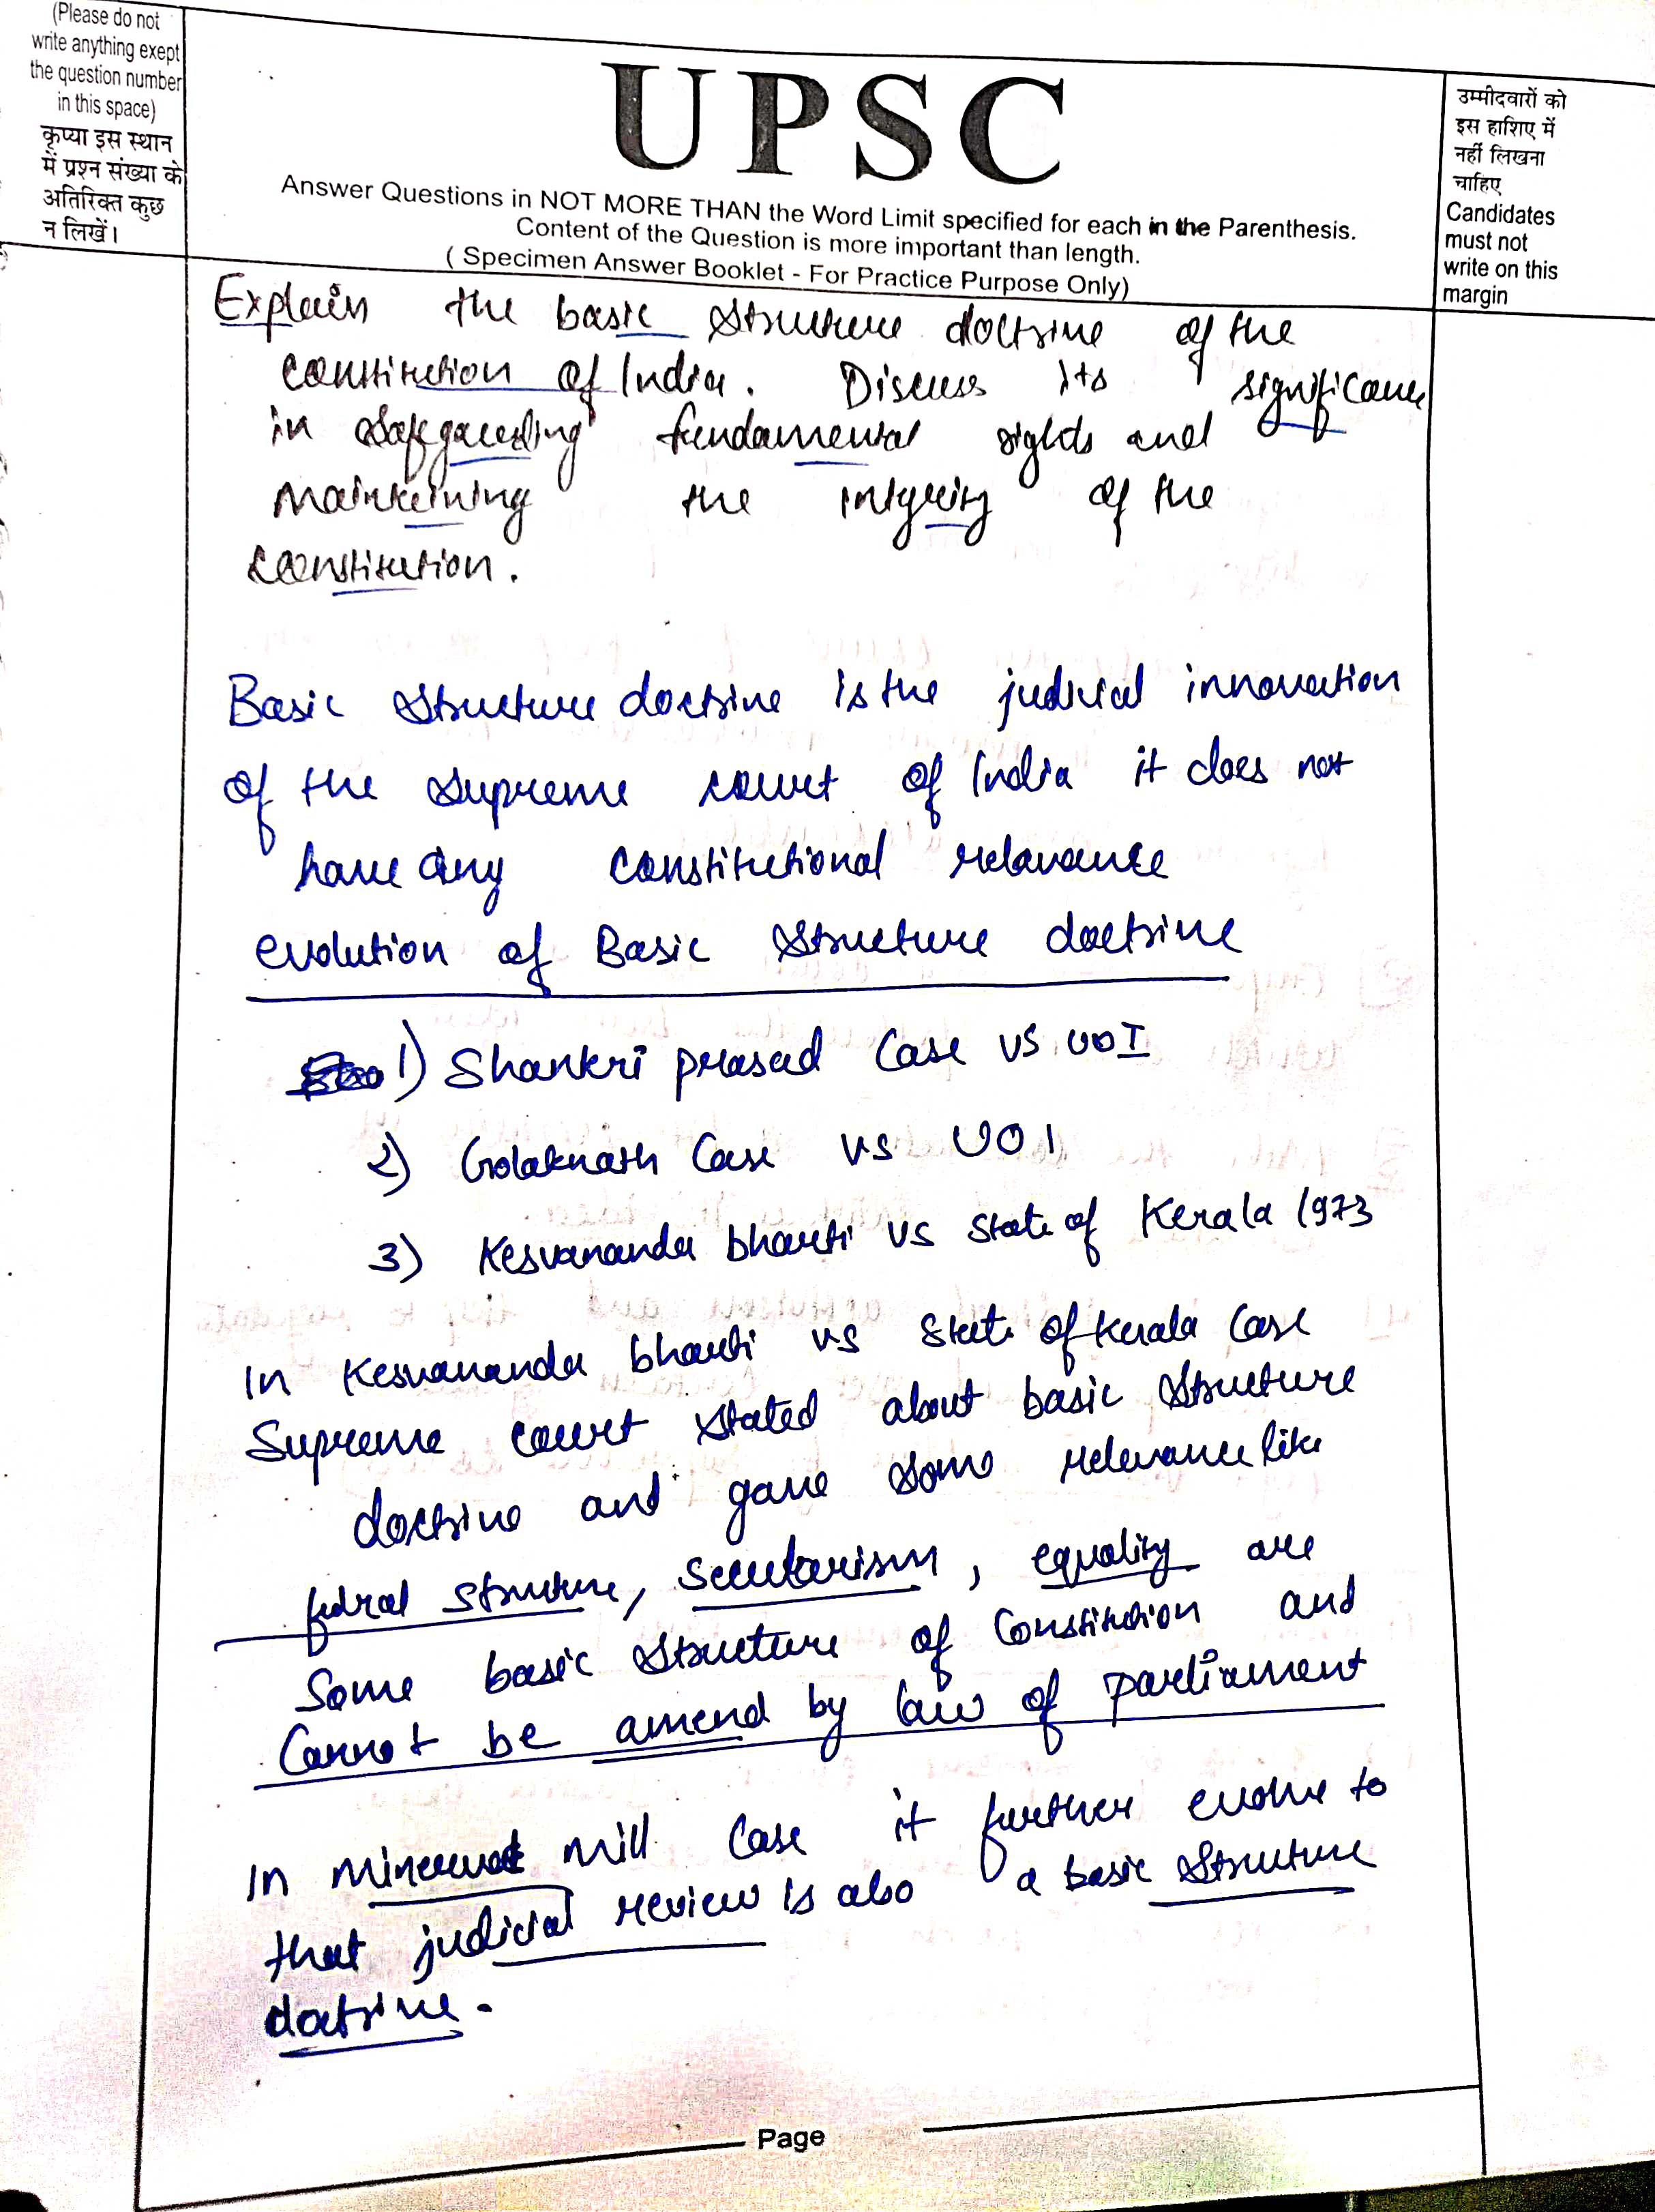 (Please do not
write anything exept
the question number
in this space)
कृप्या इस स्थान
में प्रश्न संख्या के
अतिरिक्त कुछ
न लिखें।
UPSC
Answer Questions in NOT MORE THAN the Word Limit specified for each in the Parenthesis.
Content of the Question is more important than length.
( Specimen Answer Booklet - For Practice Purpose Only)
उम्मीदवारों को
इस हाशिए में
नहीं लिखना
चाहिए
Candidates
must not
write on this
margin
Explain the basic structure doctrine of the
constitution of India. Discuss its significance
in safegaurding fundamental rights and
maintaining the intgrity of the
constitution.
Basic structure doctrine is the judicial innovation
of the supreme court of India it does not
have any constitutional relavance
evolution of Basic structure doctrine
1) Shankri prasad Case vs UOI
2) Golaknath Case vs UOI
3) Kesvananda bharti vs State of Kerala 1973
In Kesvananda bharti vs State of Kerala Case
Supreme court stated about basic structure
doctrine and gave some relevance like
fedral structure, Secularism, equality are
Some basic structure of Constitution and
Cannot be amend by law of parliament
In minerva mill Case it further evolve to
that judicial review is also a basic structure
doctrine.
Page